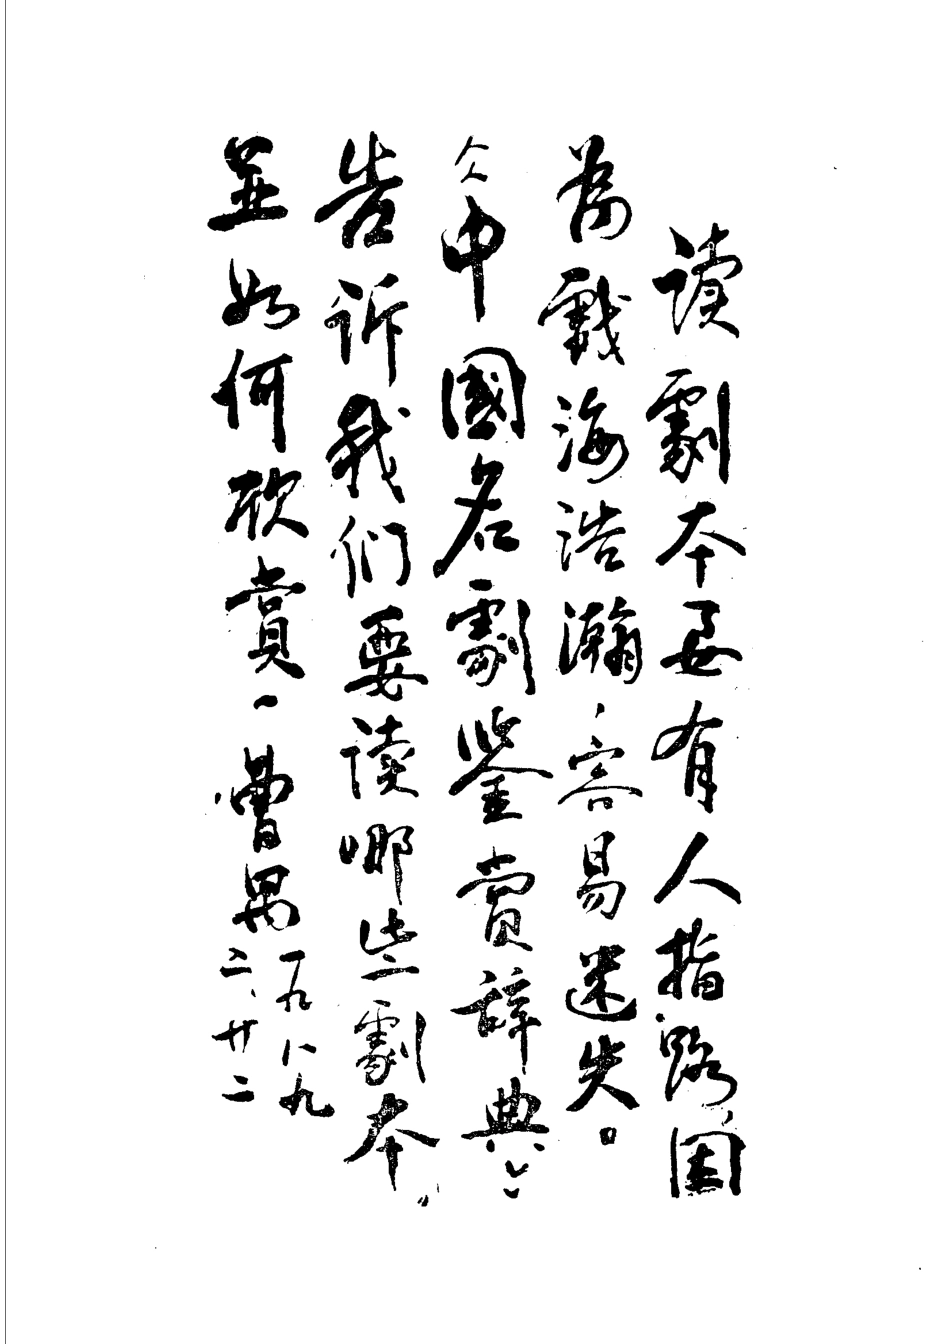 读劇本要有人指路，因
为戲海浩瀚，容易迷失。
《中國名劇鑒賞辞典》
告诉我们要读哪些劇本，
並如何欣赏。曹禺
一九八九
二、廿二